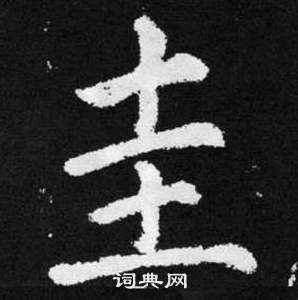 圭
词典网